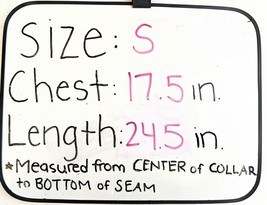 Size: S
Chest: 17.5 in.
Length: 24.5 in.
*Measured from CENTER of COLLAR
to BOTTOM of SEAM